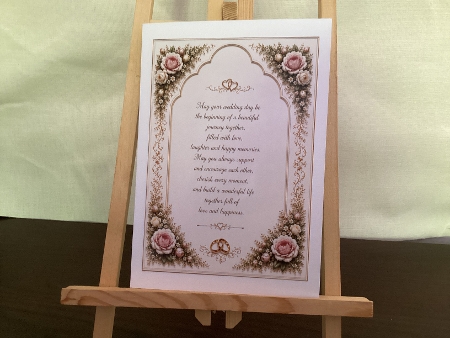 May your wedding day be
the beginning of a beautiful
journey together,
filled with love,
laughter and happy memories.
May you always support
and encourage each other,
cherish every moment,
and build a wonderful life
together full of
love and happiness.